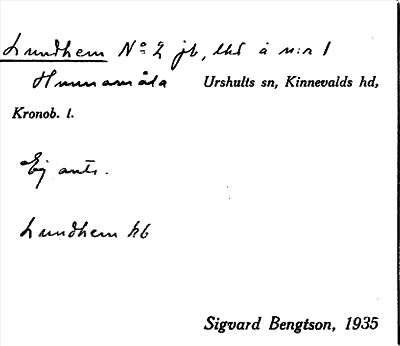 Lundhem No 2 jb, lhd å n:r 1
Hunnamåla Urshults sn, Kinnevalds hd,
Kronob. l.
Ej ant.
Lundhem kb
Sigvard Bengtson, 1935